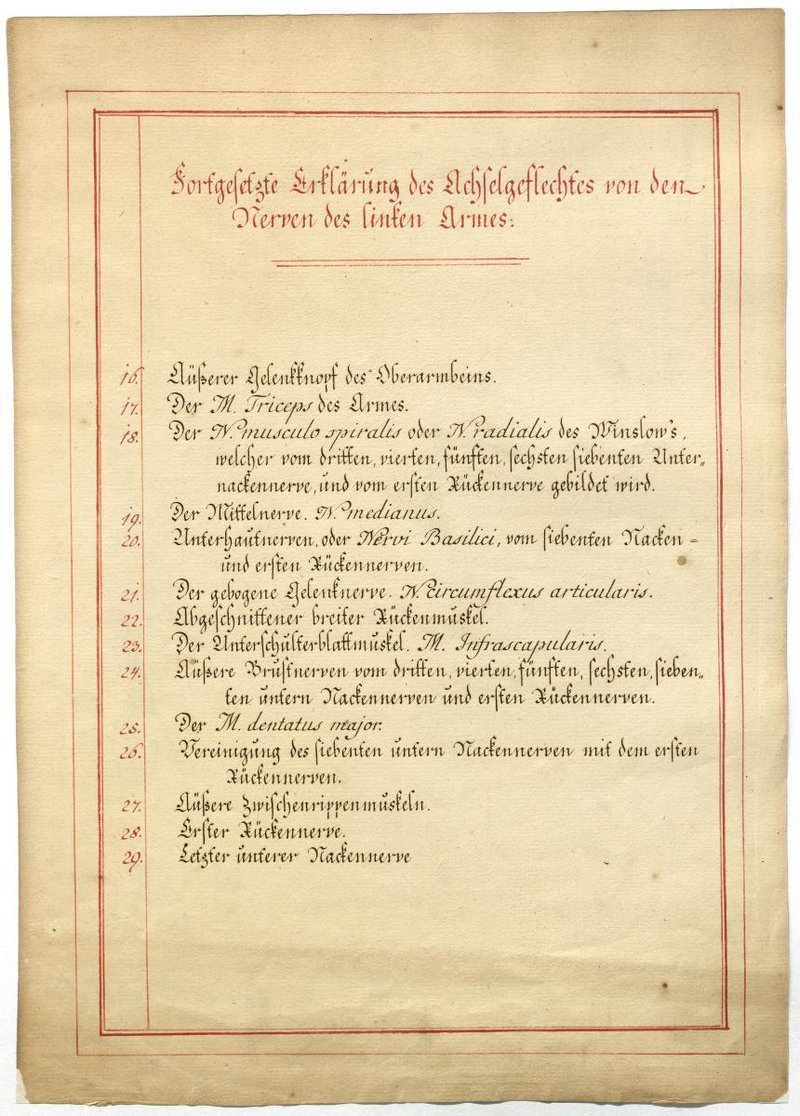 Fortgesetzte Erklärung des Achselgeflechtes von den
Nerven des linken Armes.
16. Äußerer Gelenkknopf des Oberarmbeins.
17. Der M. Triceps des Armes.
18. Der N. musculo spiralis oder N. radialis des Winslow's,
welcher vom dritten, vierten, fünften, sechsten siebenten Unter„
nackennerve, und vom ersten Rückennerve gebildet wird.
19. Der Mittelnerve. N. medianus.
20. Unterhautnerven, oder Nervi Basilici, vom siebenten Nacken =
und ersten Rückennerven.
21. Der gebogene Gelenknerve. N. circumflexus articularis.
22. Abgeschnittener breiter Rückenmuskel.
23. Der Unterschulterblattmuskel. M. Infrascapularis.
24. Äußere Brustnerven vom dritten, vierten, fünften, sechsten, sieben„
ten untern Nackennerven und ersten Rückennerven.
25. Der M. dentatus major.
26. Vereinigung des siebenten untern Nackennerven mit dem ersten
Rückennerven.
27. Äußere Zwischenrippenmuskeln.
28. Erster Rückennerve.
29. Letzter unterer Nackennerve